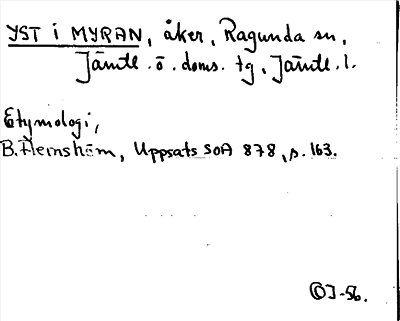 YST i MYRAN, åker, Ragunda sn,
Jämtl. ö. doms. tg, Jämtl. l.
Etymologi,
B. Flemström, Uppsats SOA 878, s. 163.
OJ-56.